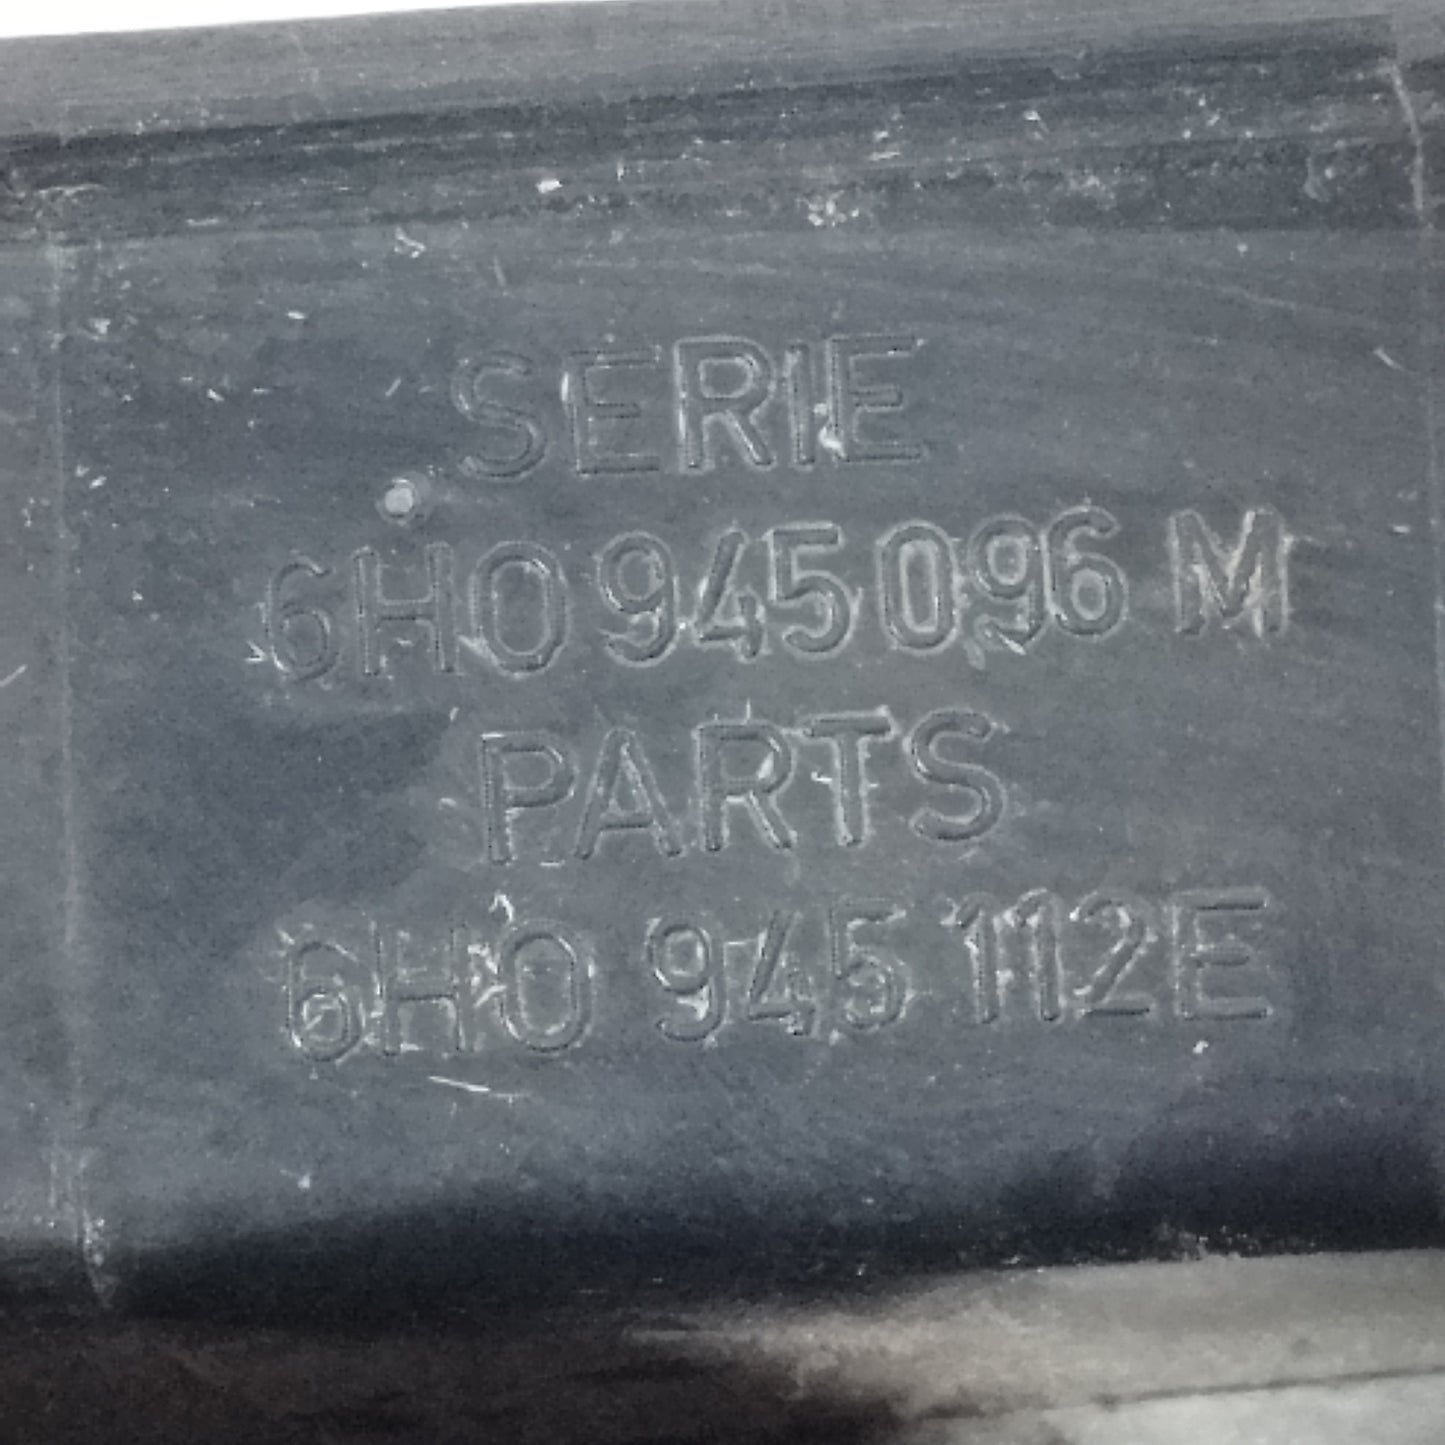 SERIE
6H0 945 096 M
PARTS
6H0 945 112E